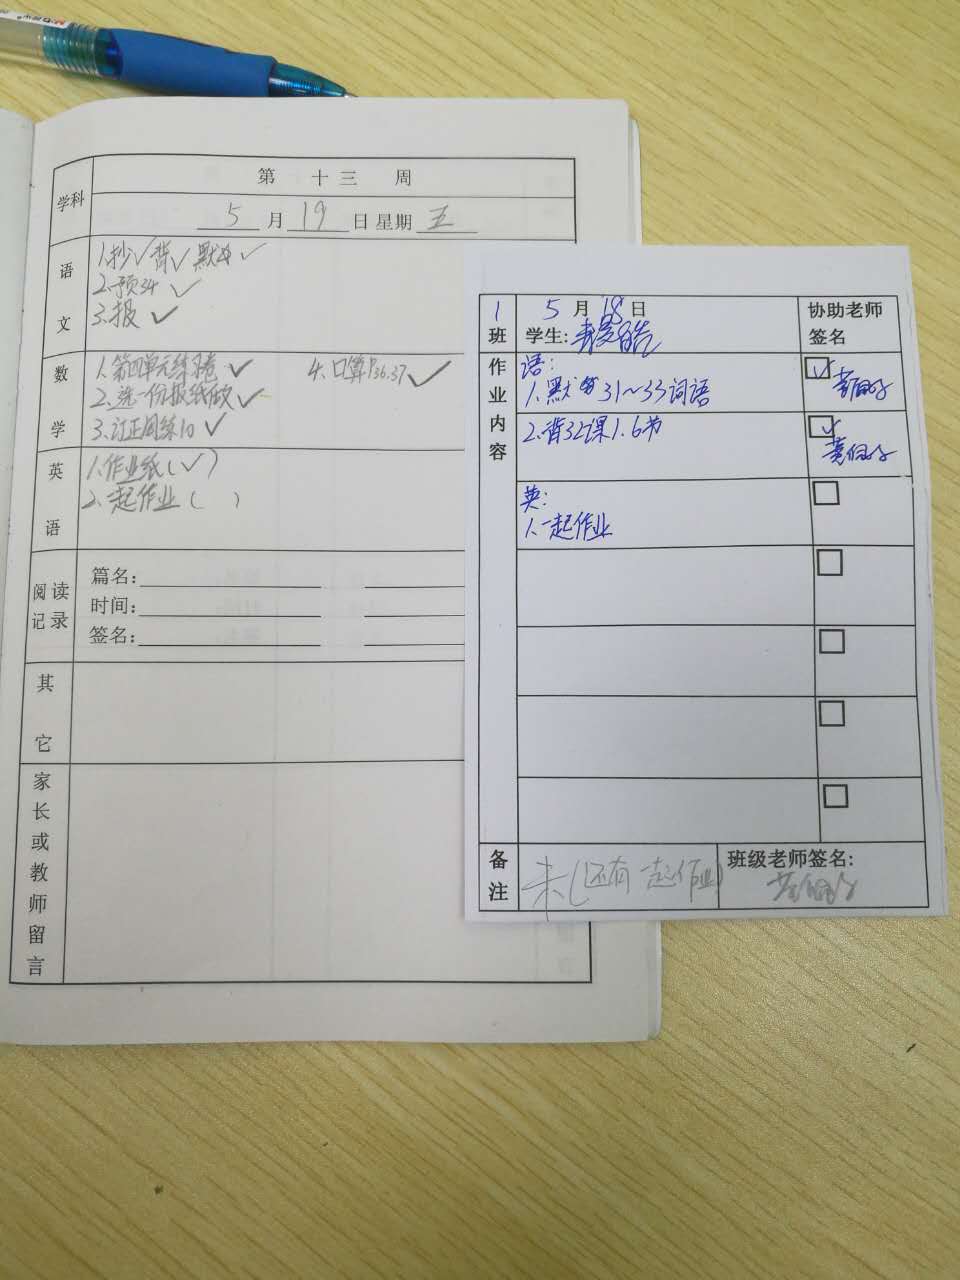 学科
第 十三 周
5 月 19 日 星期 五
语文
1.抄✓背✓默 ✓
2.预34 ✓
3.报 ✓
数学
1.第四单元练习卷 ✓
4.口算P36.37 ✓
2.选一份报纸做 ✓
3.订正周练10 ✓
英语
1.作业纸(✓)
2.一起作业( )
阅读记录
篇名:
时间:
签名:
其它
家长或教师留言
1班
5月18日
学生:
协助老师签名
作业内容
语:
1.默 31~33词语
2.背32课1.6节
英:
1.一起作业
备注
未(还有一起作业)
班级老师签名: